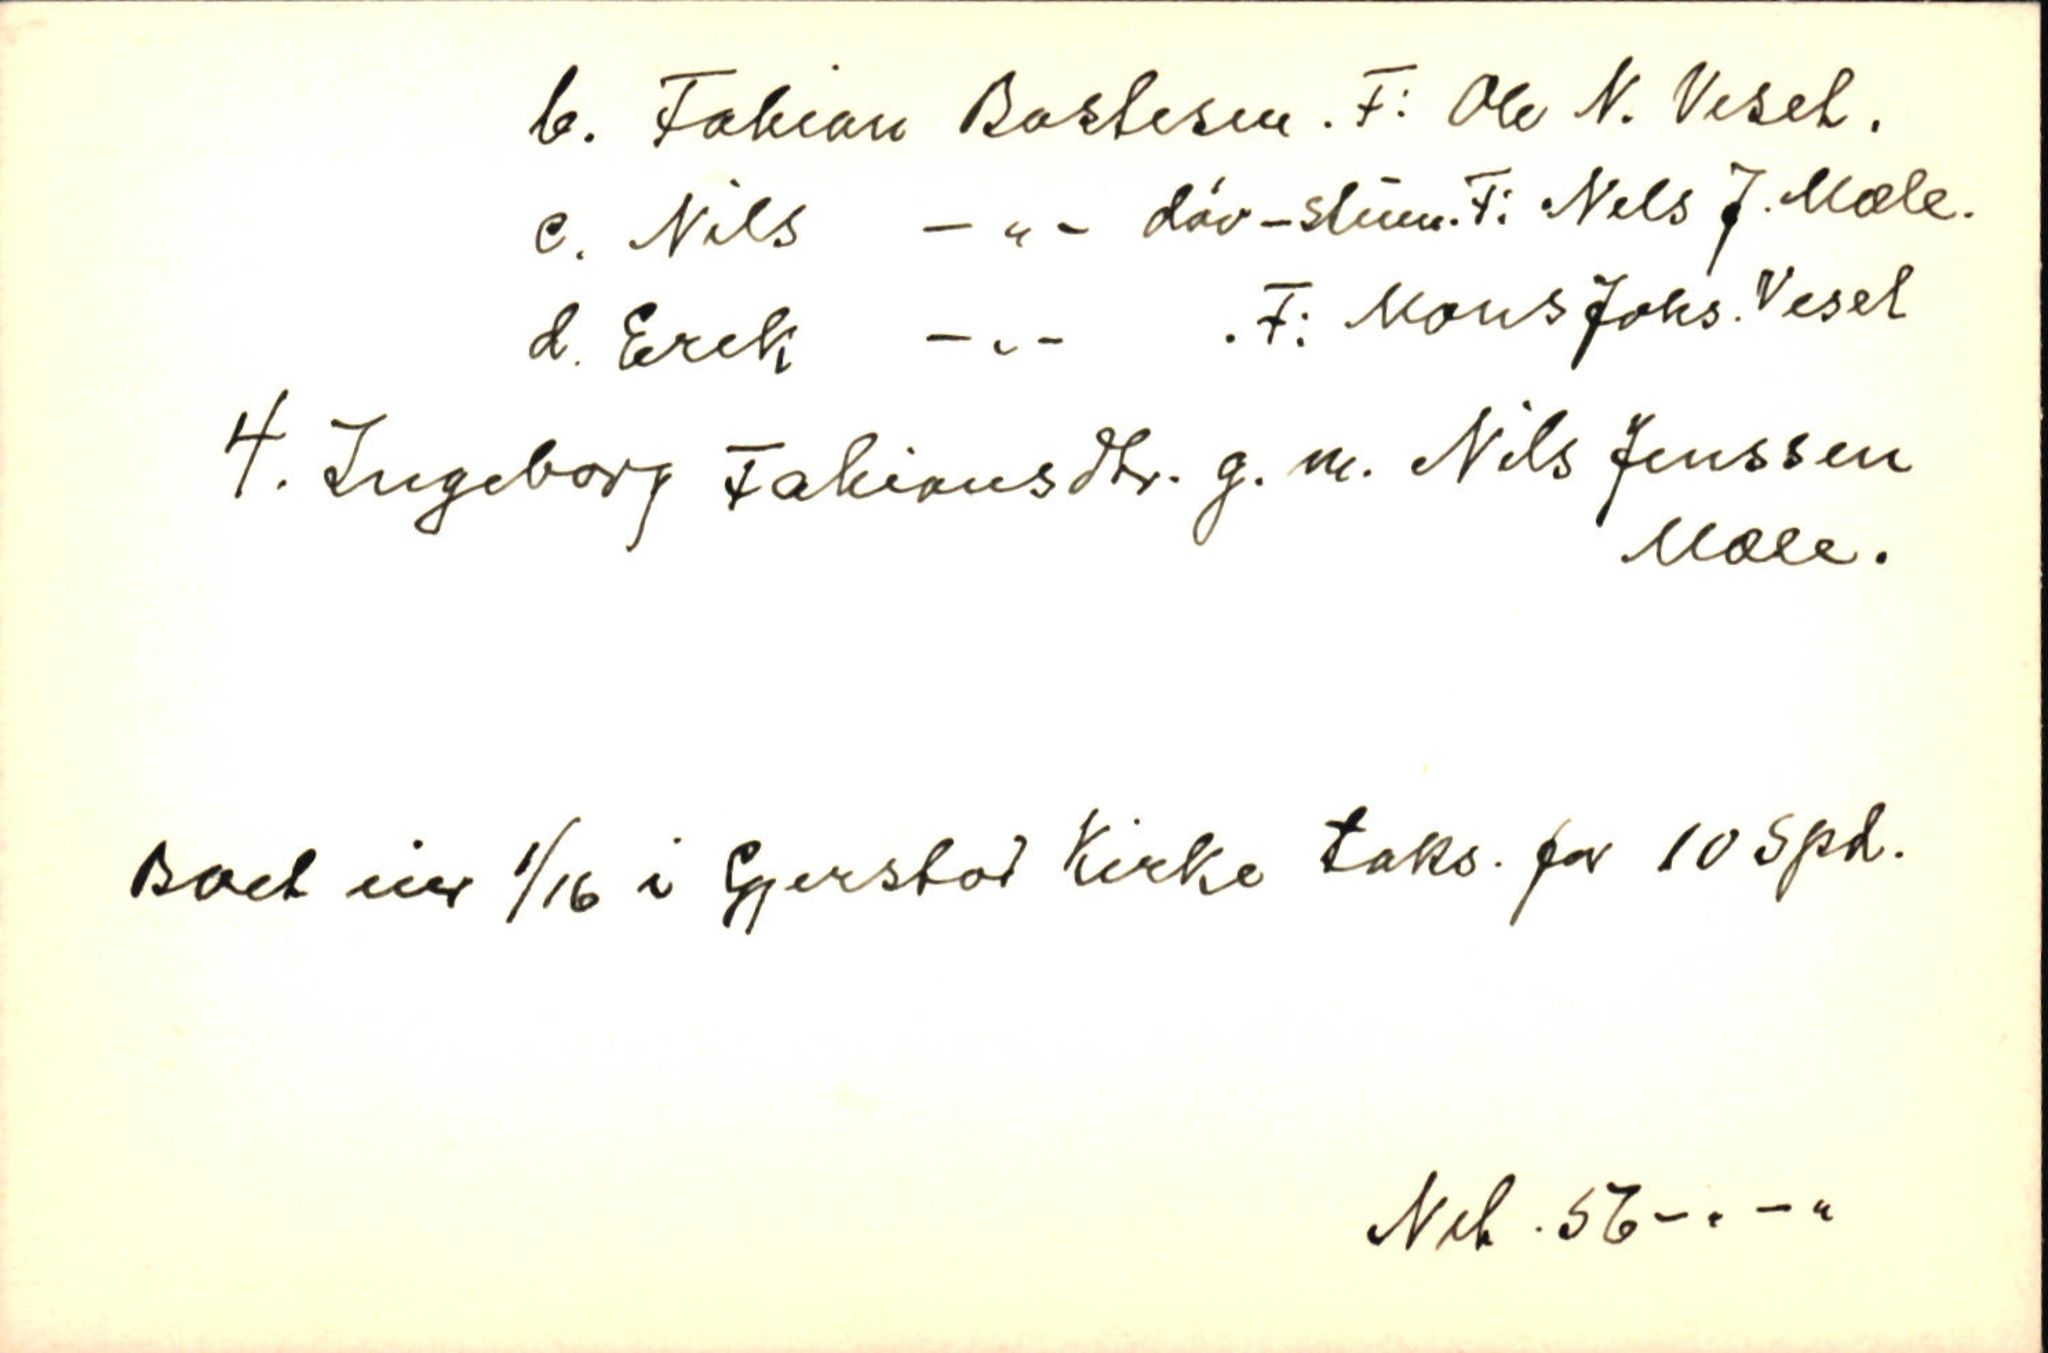 b. Fabian Bostesen. F: Ole N. Vesel.
c. Nils -"- döv-stum. F: Nils J. Mæle.
d. Erik -"- . F: Mons Johs. Vesel
4. Ingeborg Fabiansdtr. g. m. Nils Jenssen
Mæle.
Boet eier 1/16 i Gjerstad Kirke taks. for 10 Spd.
Net. 56-"-"